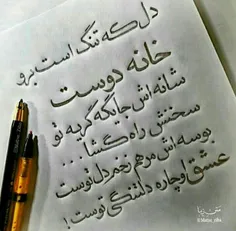 دل که تنگ است برو
خانه دوست
شانه اش جایگه گریه تو
سخنش راه گشا...
بوسه اش مرهم زخم دل توست
عشق او چاره دلتنگی توست!
متن زیبا